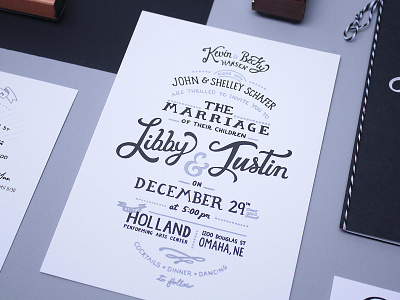 Kevin & Becky
HANSEN
JOHN & SHELLEY SCHAFER
ARE THRILLED TO INVITE YOU TO
THE
MARRIAGE
OF THEIR CHILDREN
Libby & Justin
ON
DECEMBER 29TH
at 5:00 pm
HOLLAND
PERFORMING ARTS CENTER
1200 DOUGLAS ST
OMAHA, NE
COCKTAILS • DINNER • DANCING
to follow